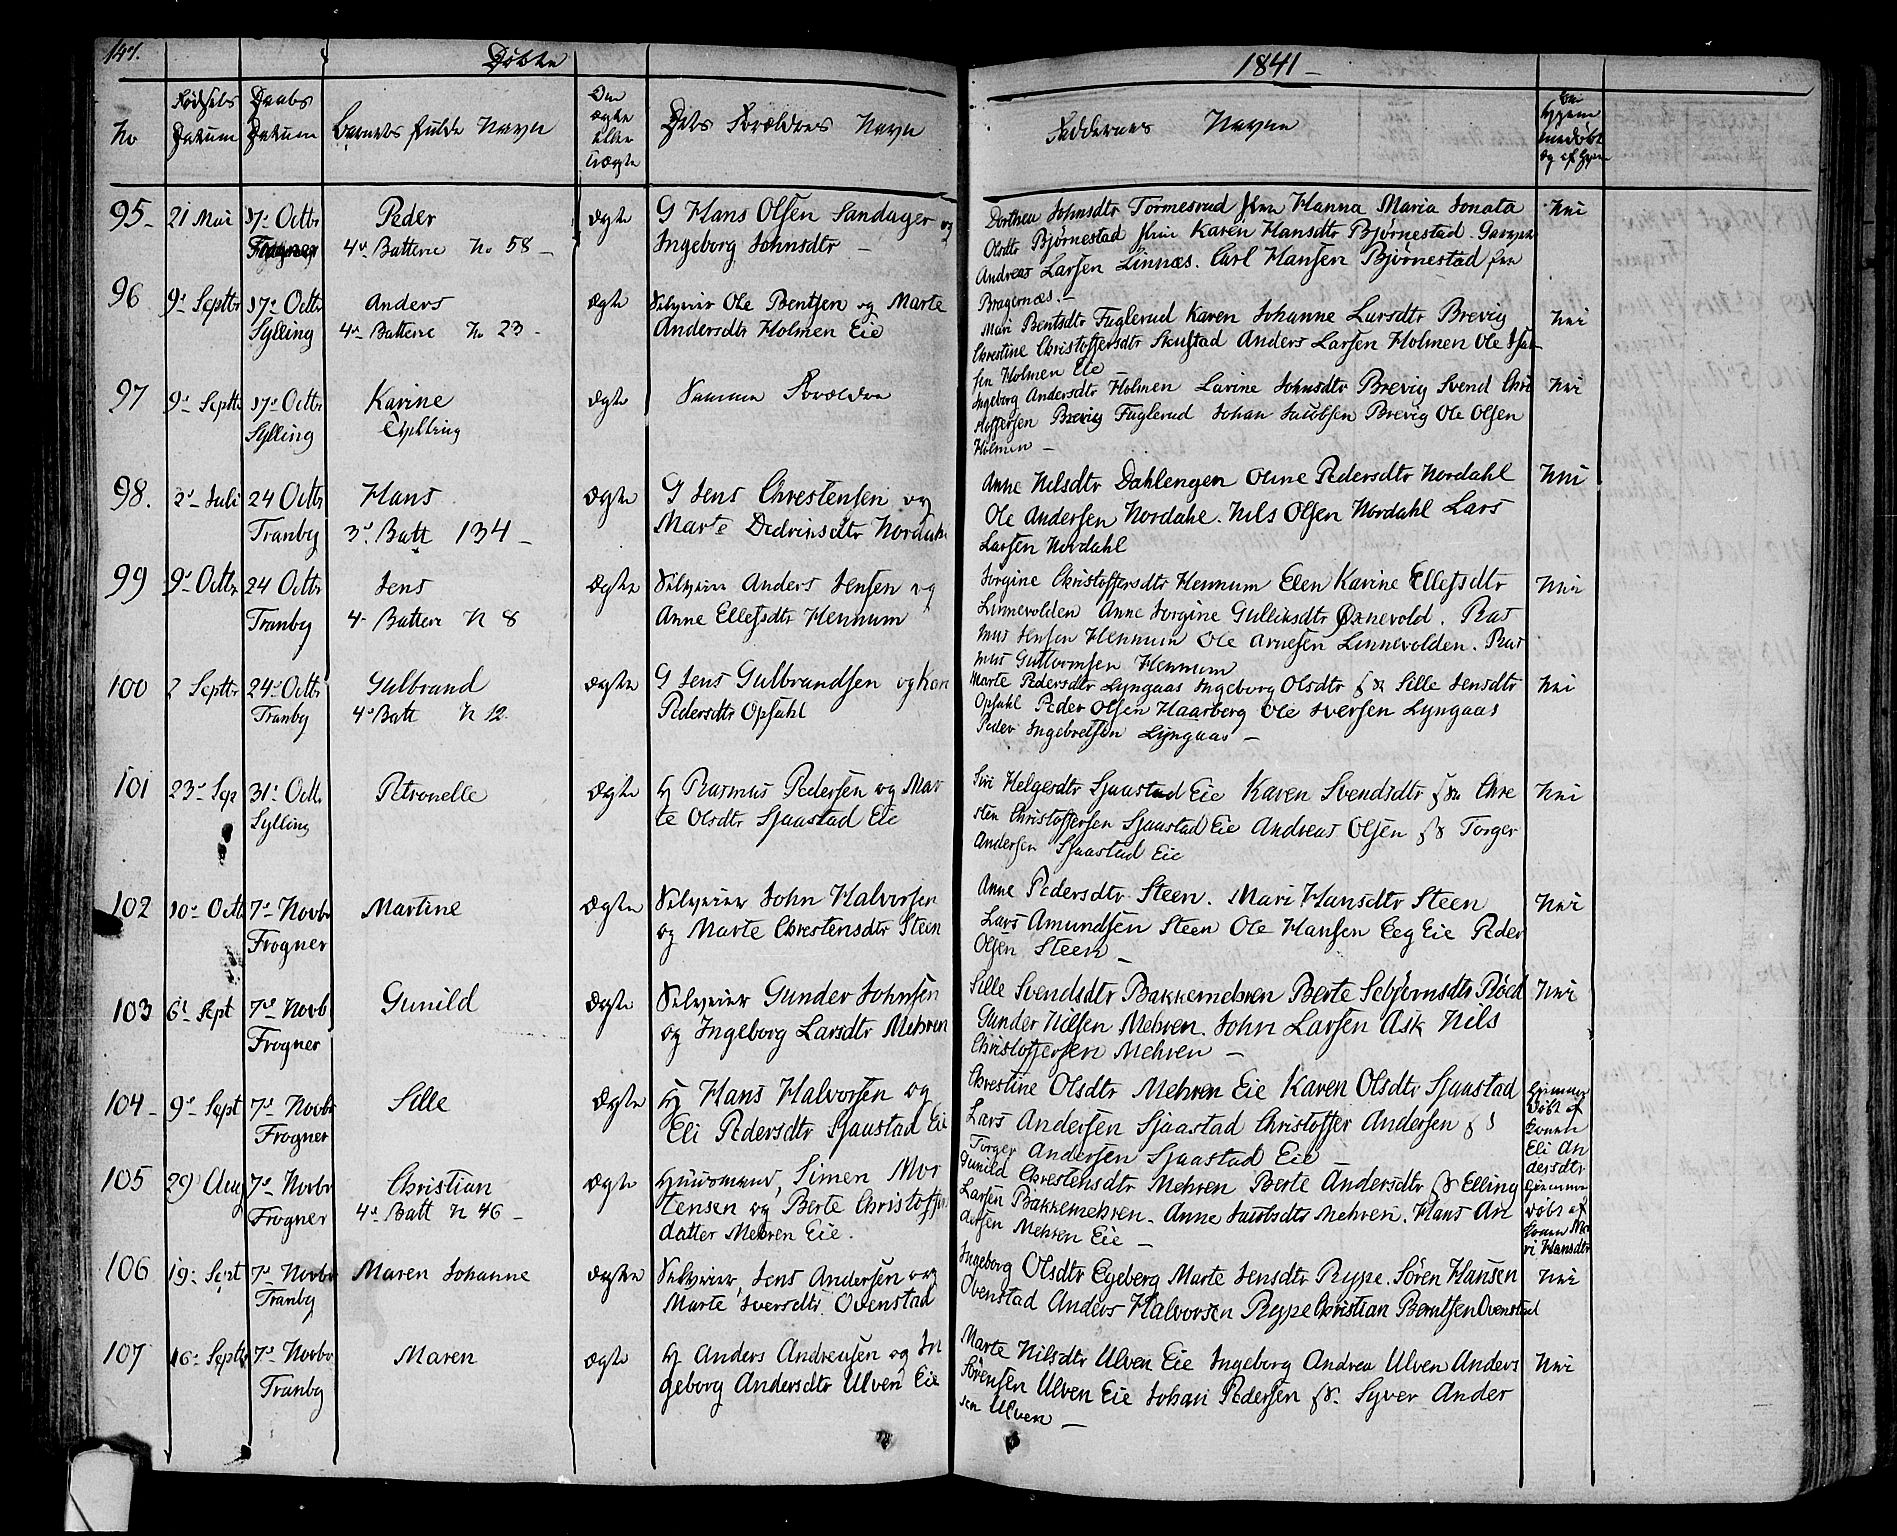 147.
Døbte
1841 –
No
Fødsels Datum
Daabs Datum
Barnets fulde Navn
Om ægte eller uægte
Dets Forældres Navn
Faddernes Navne
95. 21 Mai 17. Octbr Peder ægte G Hans Olsen Sandager og
4. Batterie No 58 – Ingeborg Johnsdtr –
Dorthea Johnsdtr Tormesrud Hanna Maria Jonata Nei
Olsdtr Bjørnestad Karen Hansdtr Bjørnestad.
Andreas Larsen Linnæs. Carl Hansen Bjørnestad fra
Bragernæs. –
96 9. Septbr 17. Octbr Anders ægte Selveier Ole Bentsen og Marte
Sylling 4. Batterie No 23 – Andersdtr Holmen Eie
Mari Bentsdtr Fuglerud Karen Johanne Larsdtr Brevig Nei
Chrestine Christoffersdtr Skustad Anders Larsen Holmen Ole Isak
sen Holmen Eie
97 9. Septbr 17. Octbr Karine ægte Samme Forældre
Sylling Tvilling
Ingeborg Andersdtr Holmen Lavine Johnsdtr Brevig Svend Chri Nei
stoffersen Brevig Fuglerud Johan Jacobsen Brevig Ole Olsen
Holmen –
98. 2. Juli 24 Octbr Hans ægte G Jens Chrestensen og
Tranby 3. Batt 134 – Marte Didriksdtr Nordahl
Anne Nilsdtr Dahlengen Oline Pedersdtr Nordahl Nei
Ole Andersen Nordahl. Nils Olsen Nordahl Lars
Larsen Nordahl
99 9. Octbr 24 Octbr Jens ægte Selveier Anders Jensen og
Tranby 4. Batterie N 8 Anne Ellefsdtr Hennum
Jorgine Christoffersdtr Hennum Elen Karine Ellefsdtr Nei
Linnevolden Anne Jorgine Gulliksdtr Øxnevold. Ras
mus Jensen Hennum Ole Arnesen Linnevolden. Ras
mus Guttormsen Hennum
100 2 Septbr 24. Octbr Gulbrand ægte G Jens Gulbrandsen og Kari
Tranby 4. Batt N 12. Pedersdtr Opsahl
Marte Pedersdtr Lyngaas Ingeborg Olsdtr Sille Jensdtr Nei
Opsahl Peder Olsen Haarberg Ole Iversen Lyngaas
Peder Ingebretsen Lyngaas –
101 23. Sep 31. Octbr Petronelle ægte H Rasmus Pedersen og Mar
Sylling te Olsdtr Sjaastad Eie
Siri Helgesdtr Sjaastad Eie Karen Svendsdtr Chre Nei
sten Christoffersen Sjaastad Eie Andreas Olsen Torger
Andersen Sjaastad Eie
102 10. Octb 7. Novbr Martine ægte Selveier John Halvorsen
Frogner og Marte Chrestensdtr Steen
Anne Pedersdtr Steen. Mari Hansdtr Steen Nei
Lars Amundsen Steen Ole Hansen Eeg Eie Peder
Olsen Steen –
103 6. Sept 7. Novb Gunild ægte Selveier Gunder Johnsen
Frogner og Ingeborg Larsdtr Mehren
Sille Svendsdtr Bakkemehren Berte Sebjørnsdtr Røed Nei
Gunder Nilsen Mehren. John Larsen Ask Nils
Christoffersen Mehren –
104 – 9. Sept 7. Novbr Sille ægte H Hans Halvorsen og
Frogner Eli Pedersdtr Sjaastad Eie
Chrestine Olsdtr Mehren Eie Karen Olsdtr Sjaastad
Lars Andersen Sjaastad Christoffer Andersen
Torger Andersen Sjaastad Eie –
Hjemme
døbt af
Eli An
dersdtr
105 29 Aug 7. Novbr Christian ægte Huusmand, Simen Mor
Frogner 4. Batt N 46 – tensen og Berte Christoffers
datter Mehren Eie.
Gunild Chrestensdtr Mehren Berte Andersdtr Elling
Larsen Bakkemehren. Anne Jacobsdtr Mehren. Hans An
dersen Mehren Eie –
Hjemme
døbt af
Konen Ma
ri Hansdtr
106 19. Sept 7. Novbr Maren Johanne ægte Selveier, Jens Andersen og
Tranby Marte Iversdtr. Ovenstad
Ingeborg Olsdtr Egeberg Marte Jensdtr Rype. Søren Hansen Nei
Ovenstad Anders Halvorsen Rype Christian Berntsen Ovenstad
107 16. Septb 7. Novbr Maren ægte H Anders Andreasen og In
Tranby geborg Andersdtr Ulven Eie
Marte Nilsdtr Ulven Eie Ingeborg Andrea Ulven Anders Nei
Sørensen Ulven Eie Johan Pedersen Syver Ander
sen Ulven –